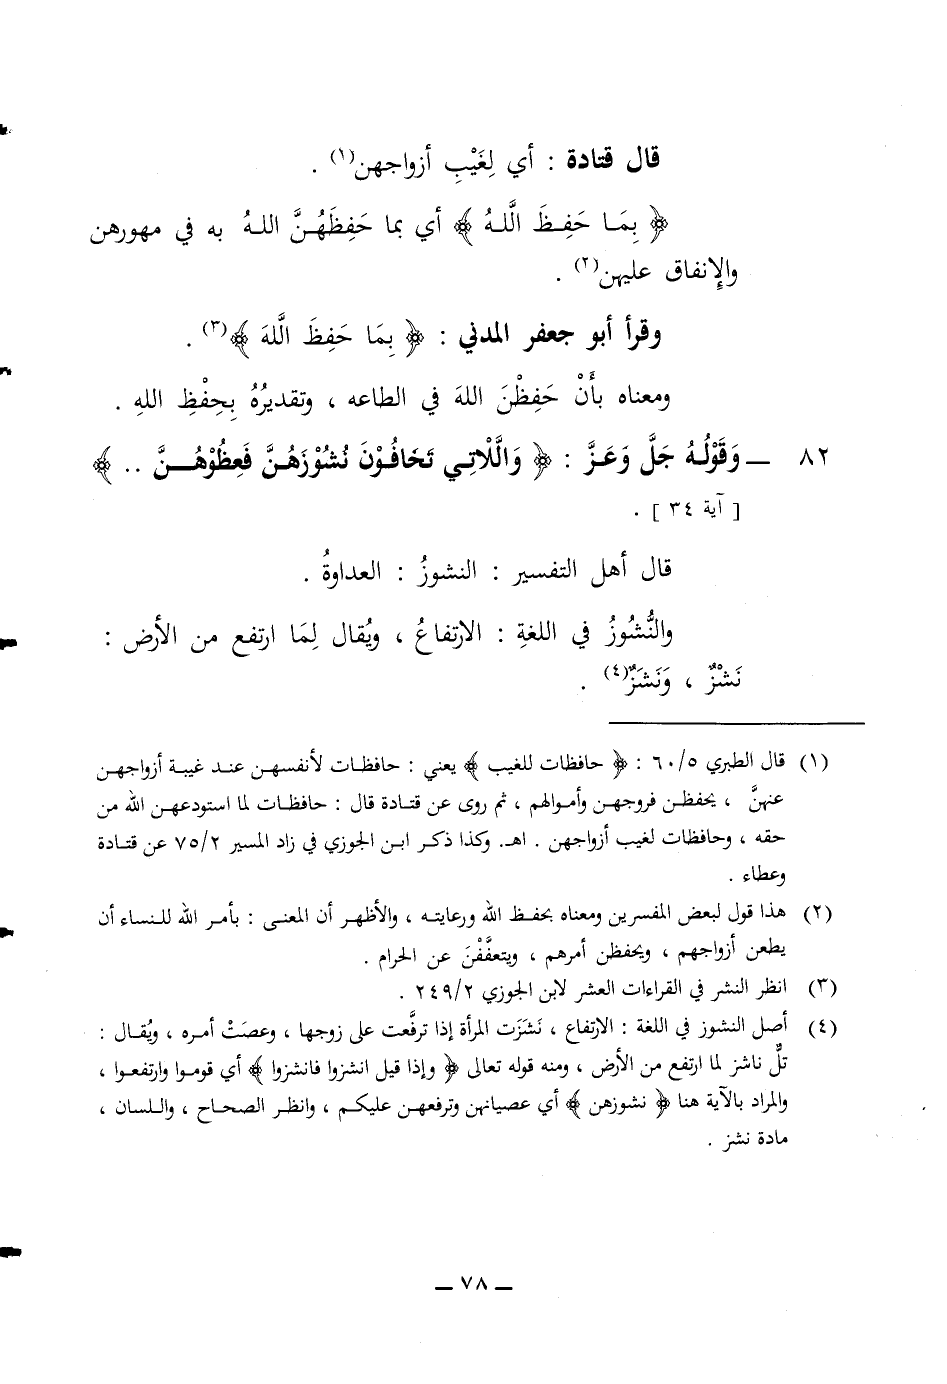 قال قتادة : أي لِغَيْبِ أزواجهن(١) .
﴿ بِمَا حَفِظَ الَّلهُ ﴾ أي بما حَفِظَهُنَّ اللهُ به في مهورهن
والإنفاق عليهن(٢) .
وقرأ أبو جعفر المدني : ﴿ بِمَا حَفِظَ الَّلهَ ﴾(٣) .
ومعناه بأَنْ حَفِظْنَ اللهَ في الطاعه ، وتقديرُهُ بِحِفْظِ اللهِ .
٨٢ ــ وَقَوْلُهُ جَلَّ وَعَزَّ : ﴿ وَالَّلاتِي تَخَافُوْنَ نُشُوْزَهُنَّ فَعِظُوْهُنَّ .. ﴾
[ آية ٣٤ ] .
قال أهل التفسير : النشوزُ : العداوةُ .
والنُّشُوزُ في اللغةِ : الارتفاعُ ، ويُقال لِمَا ارتفع من الأرض :
نَشْزٌ ، وَنَشَزٌ(٤) .
(١) قال الطبري ٦٠/٥ : ﴿ حافظات للغيب ﴾ يعني : حافظات لأنفسهن عند غيبة أزواجهن
عنهنَّ ، يحفظن فروجهن وأموالهم ، ثم روى عن قتادة قال : حافظات لما استودعهن الله من
حقه ، وحافظات لغيب أزواجهن . اهـ. وكذا ذكر ابن الجوزي في زاد المسير ٧٥/٢ عن قتادة
وعطاء .
(٢) هذا قول لبعض المفسرين ومعناه بحفظ الله ورعايته ، والأظهر أن المعنى : بأمر الله للنساء أن
يطعن أزواجهم ، ويحفظن أمرهم ، ويتعفَّفْنَ عن الحرام .
(٣) انظر النشر في القراءات العشر لابن الجوزي ٢٤٩/٢ .
(٤) أصل النشوز في اللغة : الارتفاع ، نَشَزَت المرأة إذا ترفَّعت على زوجها ، وعصَتْ أمره ، ويُقال :
تلٌّ ناشز لما ارتفع من الأرض ، ومنه قوله تعالى ﴿ وإذا قيل انشزوا فانشزوا ﴾ أي قوموا وارتفعوا ،
والمراد بالآية هنا ﴿ نشوزهن ﴾ أي عصيانهن وترفعهن عليكم ، وانظر الصحاح ، واللسان ،
مادة نشز .
ــ ٧٨ ــ